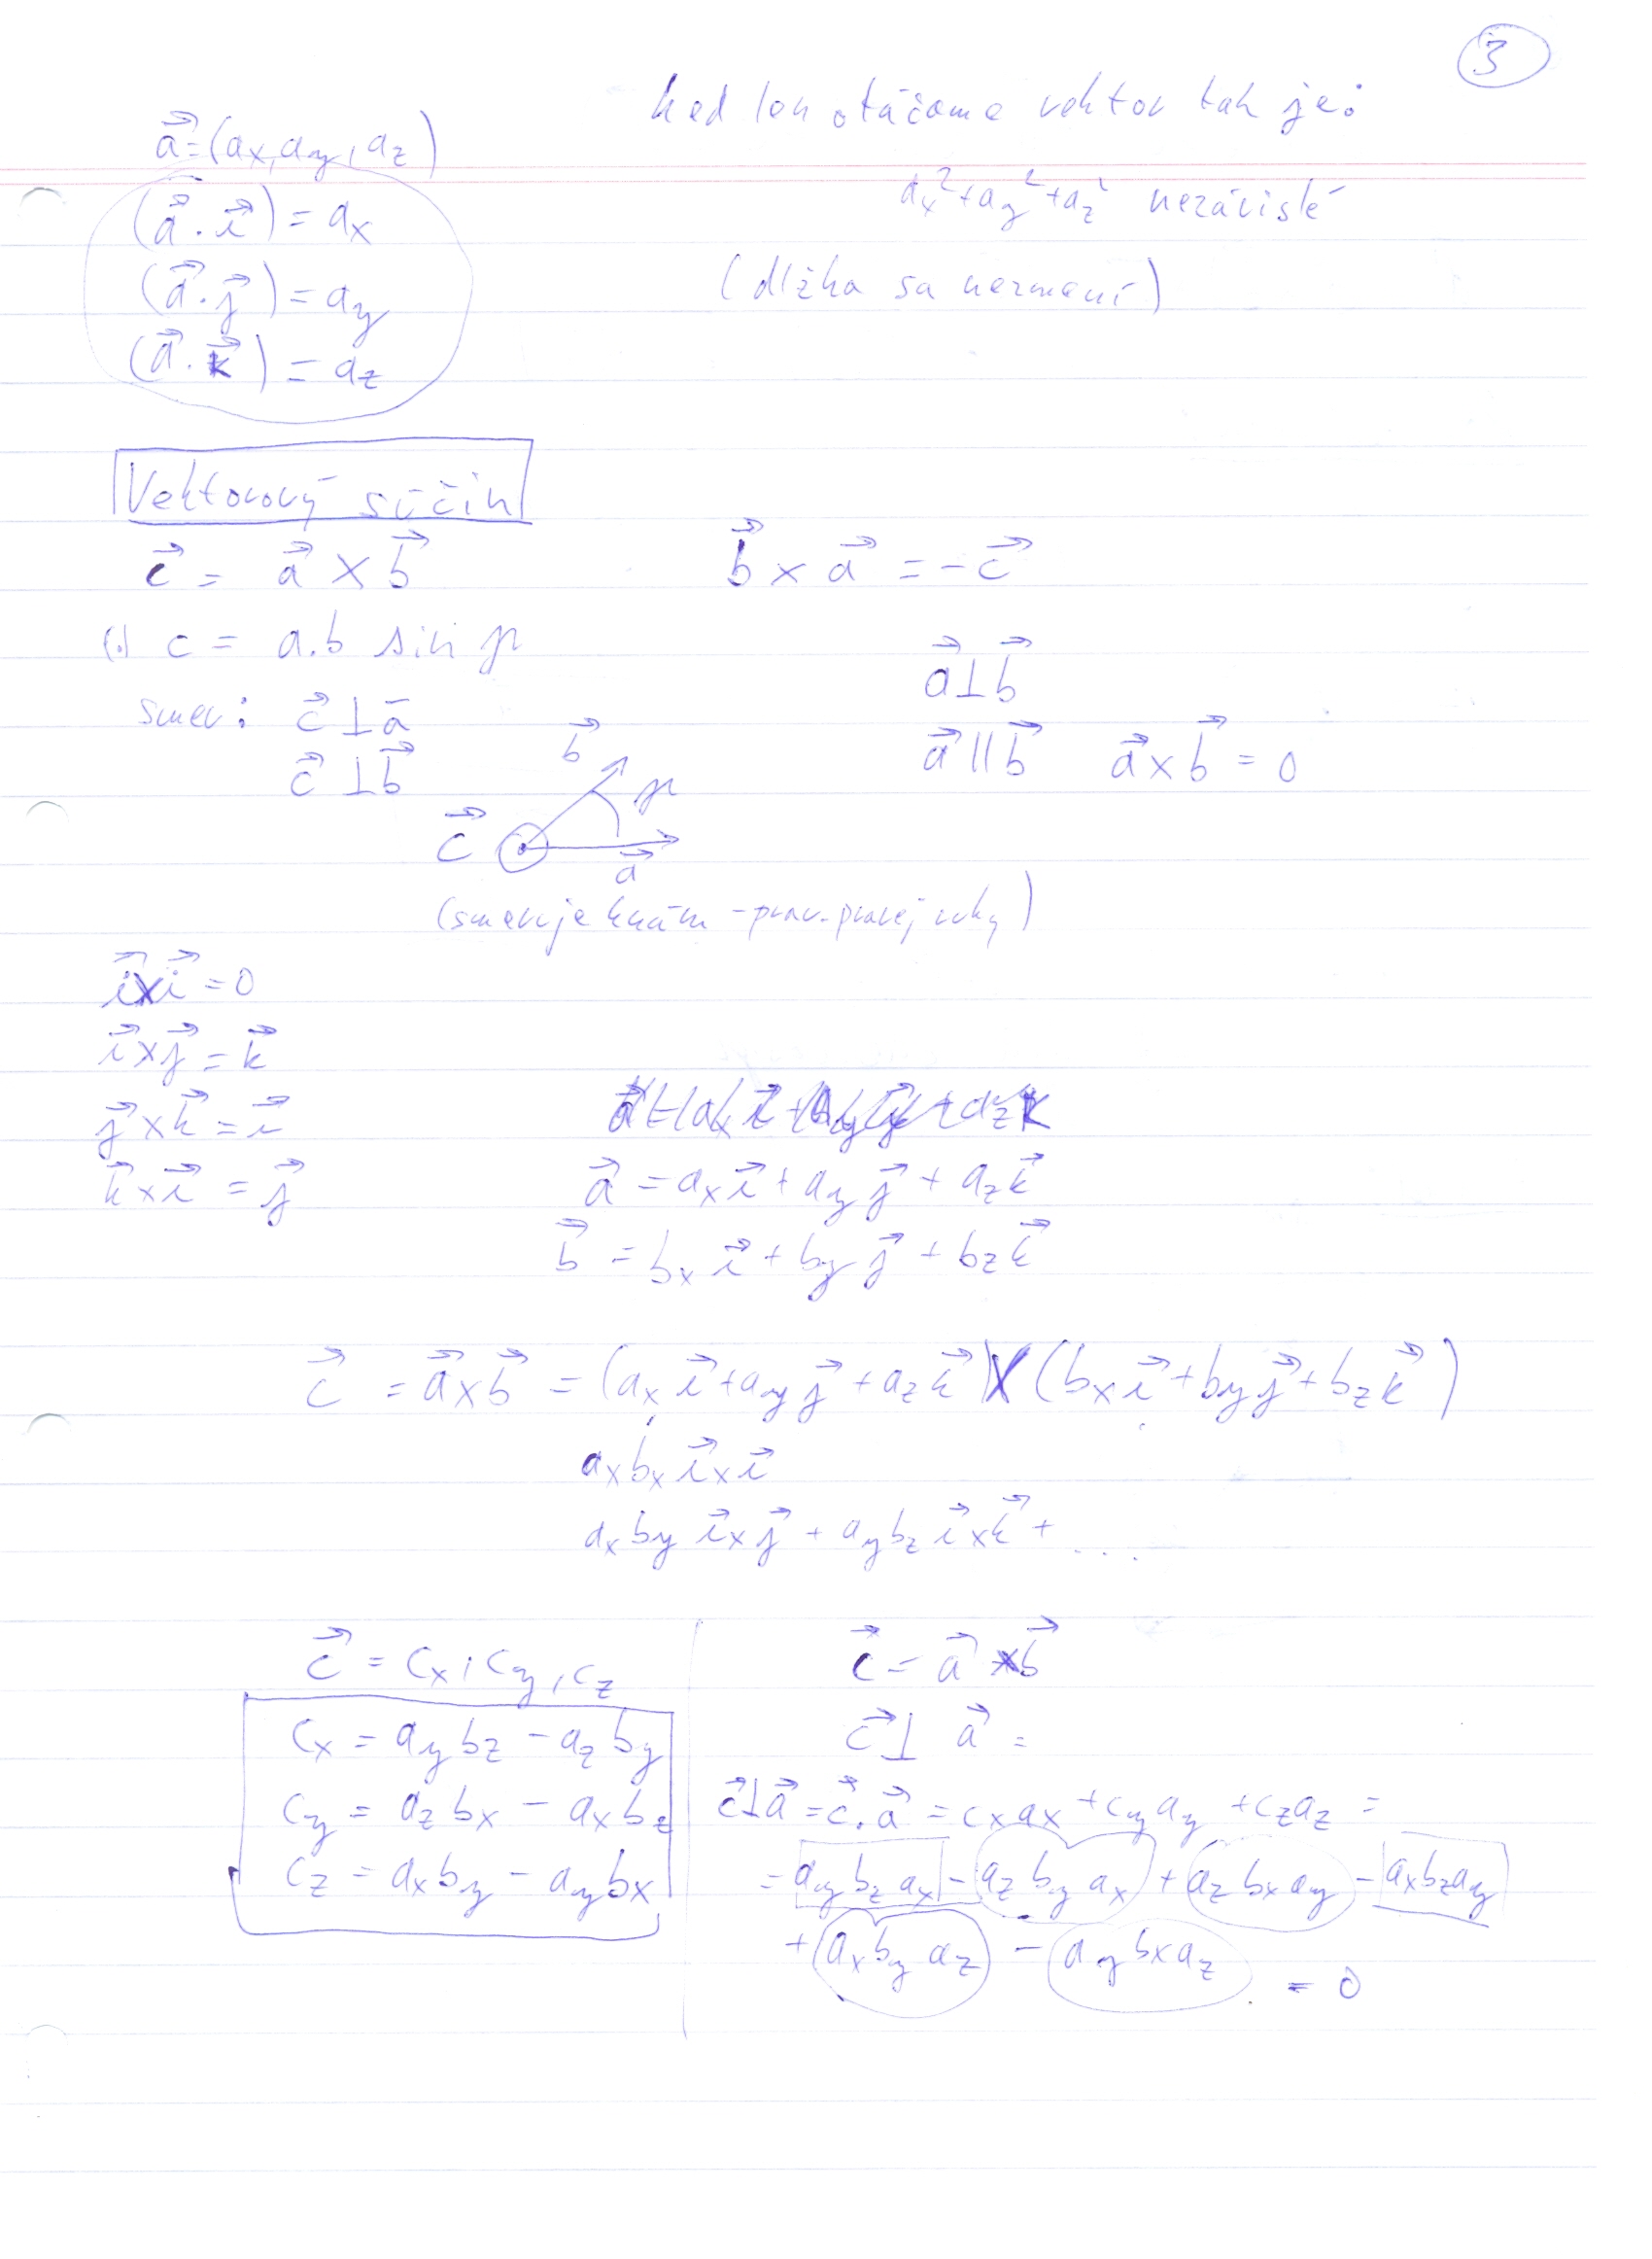 3
keď len otáčame vektor tak je:
a⃗=(ax,ay,az)
ax²+ay²+az² nezávislé
(a⃗.i⃗)=ax
(a⃗.j⃗)=ay
(dĺžka sa nezmení)
(a⃗.k⃗)=az
Vektorový súčin
c⃗ = a⃗ × b⃗
b⃗ × a⃗ = -c⃗
c = a.b sin
a⃗⊥b⃗
smer: c⃗⊥a
c⃗⊥b⃗
b⃗
a⃗||b⃗ a⃗×b⃗ = 0
c⃗
a⃗
(smeruje k nám - prav. pravej ruky)
i⃗×i⃗=0
i⃗×j⃗=k⃗
j⃗×k⃗=i⃗
k⃗×i⃗=j⃗
a⃗ = ax i⃗ + ay j⃗ + az k⃗
b⃗ = bx i⃗ + by j⃗ + bz k⃗
c⃗ = a⃗×b⃗ = (ax i⃗+ay j⃗+az k⃗)×(bx i⃗+by j⃗+bz k⃗)
ax bx i⃗×i⃗
ax by i⃗×j⃗ + ay bz i⃗×k⃗ + ...
c⃗ = cx, cy, cz
cx = ay bz - az by
cy = az bx - ax bz
cz = ax by - ay bx
c⃗ = a⃗ × b⃗
c⃗⊥ a⃗ =
c⃗⊥a⃗ = c⃗.a⃗ = cx ax + cy ay + cz az =
= ay bz ax - az by ax + az bx ay - ax bz ay
+ ax by az - ay bx az = 0